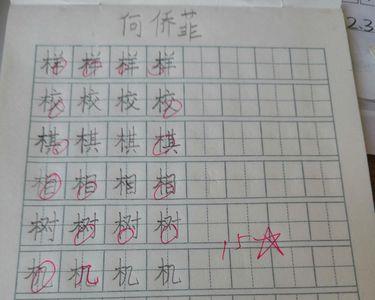 何侨韮
样样样样
校校校校
棋棋棋棋
相相相相
树树树树
15☆
机机机机
2.3